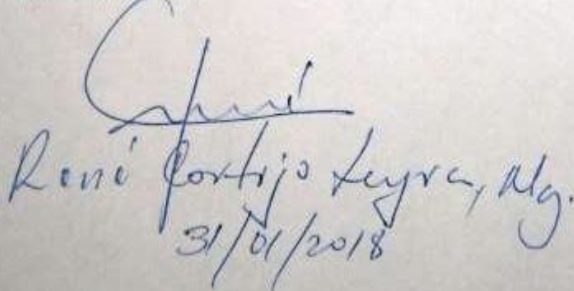 René Cortijo Leyva, Mg.
31/01/2018